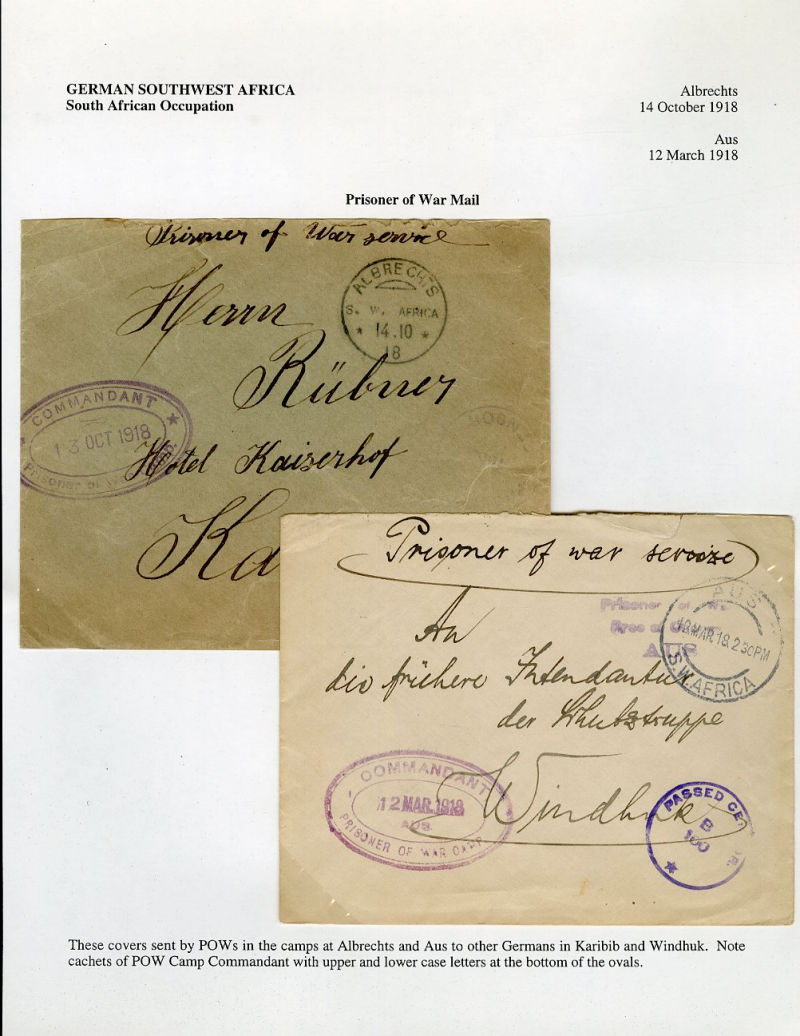 GERMAN SOUTHWEST AFRICA
South African Occupation
Albrechts
14 October 1918
Aus
12 March 1918
Prisoner of War Mail
Prisoner of War service
ALBRECHTS
S. W. AFRICA
* 14.10 *
18
Herrn
Rübner
COMMANDANT
13 OCT 1918
Prisoner of
Hotel Kaiserhof
Ka
Prisoner of war service
Prisoner of
Free
AUS
AUS
12 MAR.18.2 30PM
S.W.AFRICA
An
die frühere Intendantur
der Schutztruppe
Windhuk
COMMANDANT
12 MAR.1918
AUS.
PRISONER OF WAR CAMP
PASSED
B
160
These covers sent by POWs in the camps at Albrechts and Aus to other Germans in Karibib and Windhuk. Note
cachets of POW Camp Commandant with upper and lower case letters at the bottom of the ovals.